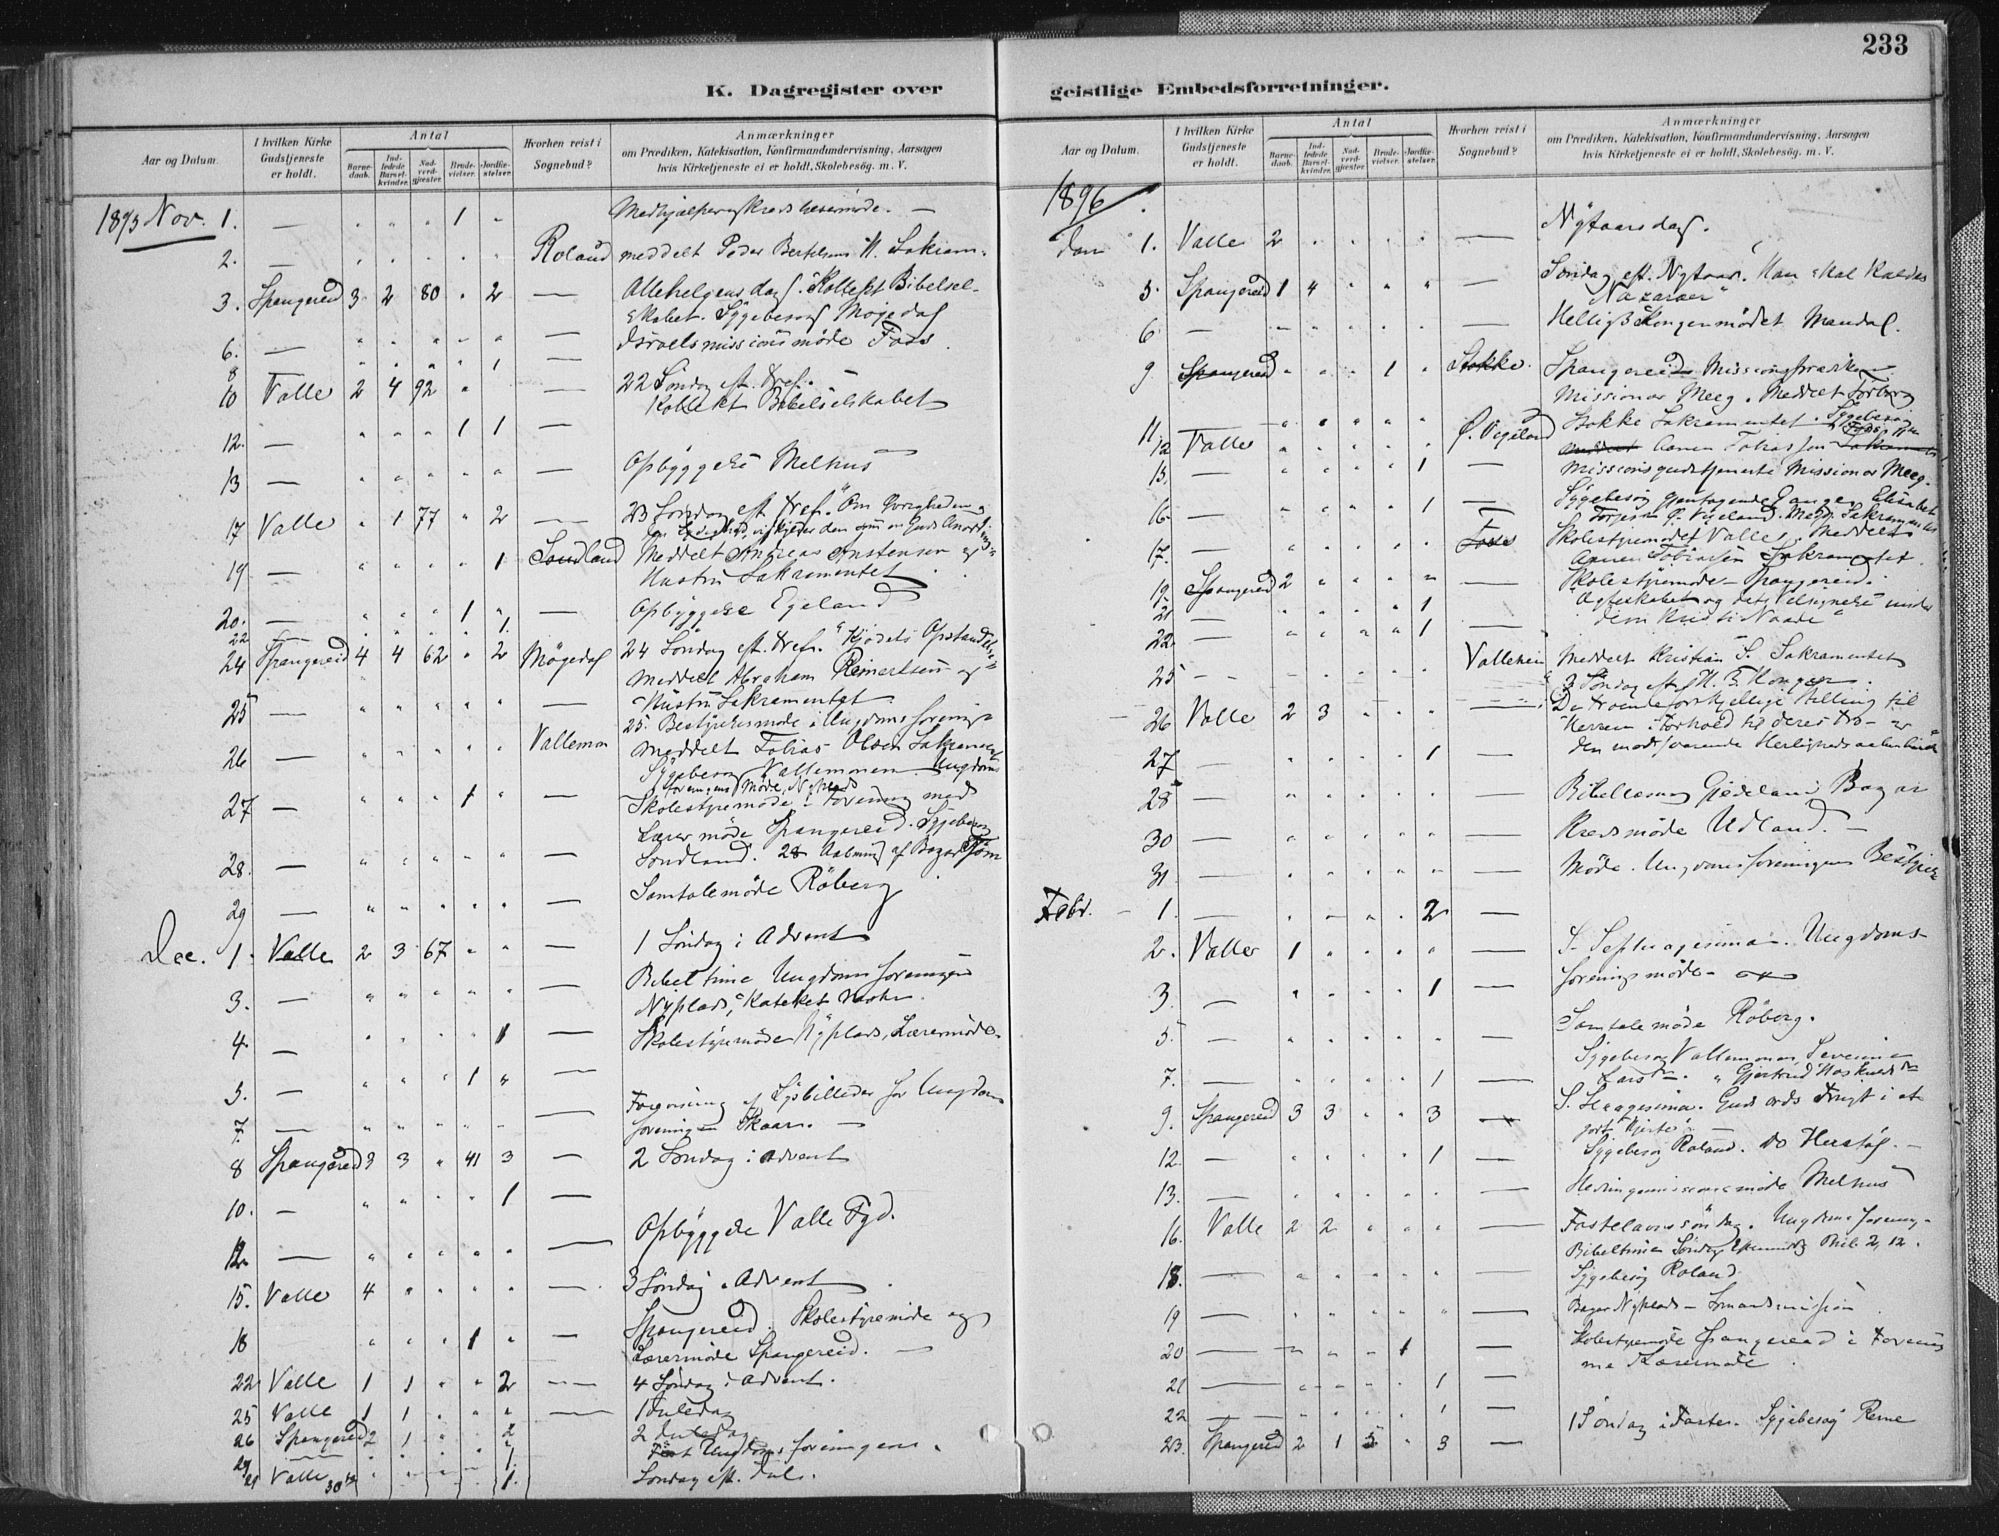 233
K. Dagregister over geistlige Embedsforretninger.
Aar og Datum.
I hvilken Kirke Gudstjeneste er holdt.
Antal
Barnedaab.
Indledede Barselkvinder.
Nadverdgjæster.
Brudevielser.
Jordfæstelser.
Hvorhen reist i Sognebud?
Anmærkninger
om Prædiken, Katekisation, Konfirmandundervisning, Aarsagen
hvis Kirketjeneste ei er holdt, Skolebesøg. m. V.
1895 Nov. 1. — " " " 1 "
2. — " " " " " Roland meddelt Peder Bertelsen
3. Spangereid 3 2 80 " 2 — Allehelgensdag. Kollekt Bibelsel-
skabet. Sygebesøg Møgedal
6. — " " " " " — Israelsmissionsmøde Foss
8 — " " " " 1 —
10 Valle 2 4 92 " " — 22 Søndag eft. Tref.
Kollekt Bibelselskabet
12. — " " " 1 1 —
13 — " " " " " — Opbyggelse Melhus
17 Valle " 1 77 " 2 — 23 Søndag eft. Tref.
19 — " " " " 1 Sondland Meddelt Andreas Anstensen og
Hustru Sakramentet
20. — " " " 1 " — Opbyggelse Egeland
22 — " " " " 1
24 Spangereid 4 4 62 " 2 Møgedal 24 Søndag eft. Tref. "Kjødets Opstandelse"
meddelt Abraham Reinertsen og
Hustru Sakramentet
25 — " " " " " — 25. Bestyrelsesmøde i Ungdomsforening
26 — " " " " " Vallemon meddelt Tobias Olsen Sakramentet
Sygebesøg Vallemonen. Ungdoms
foreningens Møde, Nyplads
27 — " " " 1 " — Skolestyremøde i Forening med
Lærermøde Spangereid. Sygebesøg
28. — " " " " " — Sondland. 28 Aabning af Bazar
29 — " " " " " — Samtalemøde Røberg
Dec. 1. Valle 2 3 67 " " — 1 Søndag i Advent
3. — " " " " " — Bibeltime Ungdomsforeningen
Nyplads,
4. — " " " " 1 — Skolestyremøde Nyplads, Lærermøde
5. — " " " 1 " —
7. — " " " " " — Forevisning af Lysbilleder for Ungdoms
foreningen Skaar. —
8 Spangereid 3 3 " 41 3 — 2 Søndag i Advent
10. — " " " " 1 —
12. — " " " " " — Opbyggelse Valle Fgd.
15. Valle 4 " " " " — 3 Søndag i Advent
18 " " " 1 " — Spangereid. Skolestyremøde og
Lærermøde Spangereid. —
22 Valle 1 1 " " 2 — 4 Søndag i Advent.
25 Valle 1 1 " " " — 1 Juledag
26 Spangereid 2 1 " " 2 2 Juledag
27 — " " " " 1. Ungdomsforeningen.
29 Valle " " " " 1. Søndag eft. Jul.
Aar og Datum.
I hvilken Kirke Gudstjeneste er holdt.
Antal
Barnedaab.
Indledede Barselkvinder.
Nadverdgjæster.
Brudevielser.
Jordfæstelser.
Hvorhen reist i Sognebud?
Anmærkninger
om Prædiken, Katekisation, Konfirmandundervisning, Aarsagen
hvis Kirketjeneste ei er holdt, Skolebesøg. m. V.
1896
Jan 1. Valle 2 " " " " — Nytaarsdag.
5. Spangereid 1 4 " " " — Søndag eft. Nytaar. Han skal kaldes
"Nazaræer"
6 — " " " " " — Hellig 3 Kongermødet Mandal.
9 Spangereid " " " 1 " Stokke. Spangereid Missionsprædiken
Missionær Meeg. Meddelt
11 — " " " " " Ø. Vigeland Stokke Sakramentet. Sygebesøg
12 Valle " " " " "
15. — " " " " 1 — missionsgudstjeneste Missionær Meeg.
16 — " " " " 1 — Sygebesøg gjentagende Gange, Elisabet
Ø. Vigeland. Medd. Sakramentet
17. — " " " " " Foss Skolestyremødet Valle. Meddelt
Tobiasson Sakramentet.
19. Spangereid 2 " " " " Skolestyremøde Spangereid.
21 — " " " " 1 "Ægteskabet og dets Velsignelse" under
22. — " " " " 1 —
25 — " " " " " Valleheia Meddelt Kristian S. Sakramentet
3 Søndag eft. H. 3 Konger.
26 Valle 2 3 " " " — De troendes forskjellige Stilling til
Herren i Forhold til deres Tro — og
27 — " " " " 1 —
28 — " " " " " — Bibellæsning Gjedeland Bazar
30 — " " " " " — Kredsmøde Udland. —
31 — " " " " " — Møde. Ungdomsforeningens Bestyrelse
Febr. 1. — " " " " 2 —
2. Valle 1 " " " " — S. Septuagesima. Ungdoms-
foreningsmøde
3. — " " " " 1 —
5. — " " " " " — Samtalemøde Røberg.
7. — " " " " 1 — Sygebesøg Vallemonen, Severine
9. Spangereid 3 3 " " 3 — S. Sexagesima. Guds Ords Frugt i et
godt Hjerte. —
12. — " " " " 1 — Sygebesøg Roland. Do
13. — " " " " " — Hedningemissionsmøde Melhus
16. Valle 2 2 " " " — Fastelavnssøndag. Ungdomsforening.
Bibeltime Phil. 2, 12.
18. — " " " " " — Sygebesøg Roland.
19 — " " " " " — Bazar Nyplads — Sømandsmission
20 — " " " 1 — Skolestyremøde Spangereid i Forening
m. Lærermøde
21 — " " " " 1 —
22 — " " " " 1 —
23. Spangereid 2 1 5 " 3 — 1 Søndag i Faste. Sygebesøg Reme